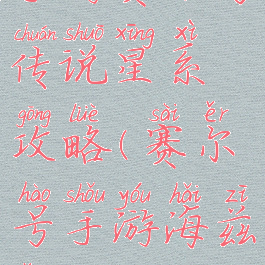 chuán shuō xīng xì
传说星系
gōng lüè sài ěr
攻略(赛尔
hào shǒu yóu hǎi zī
号手游海兹